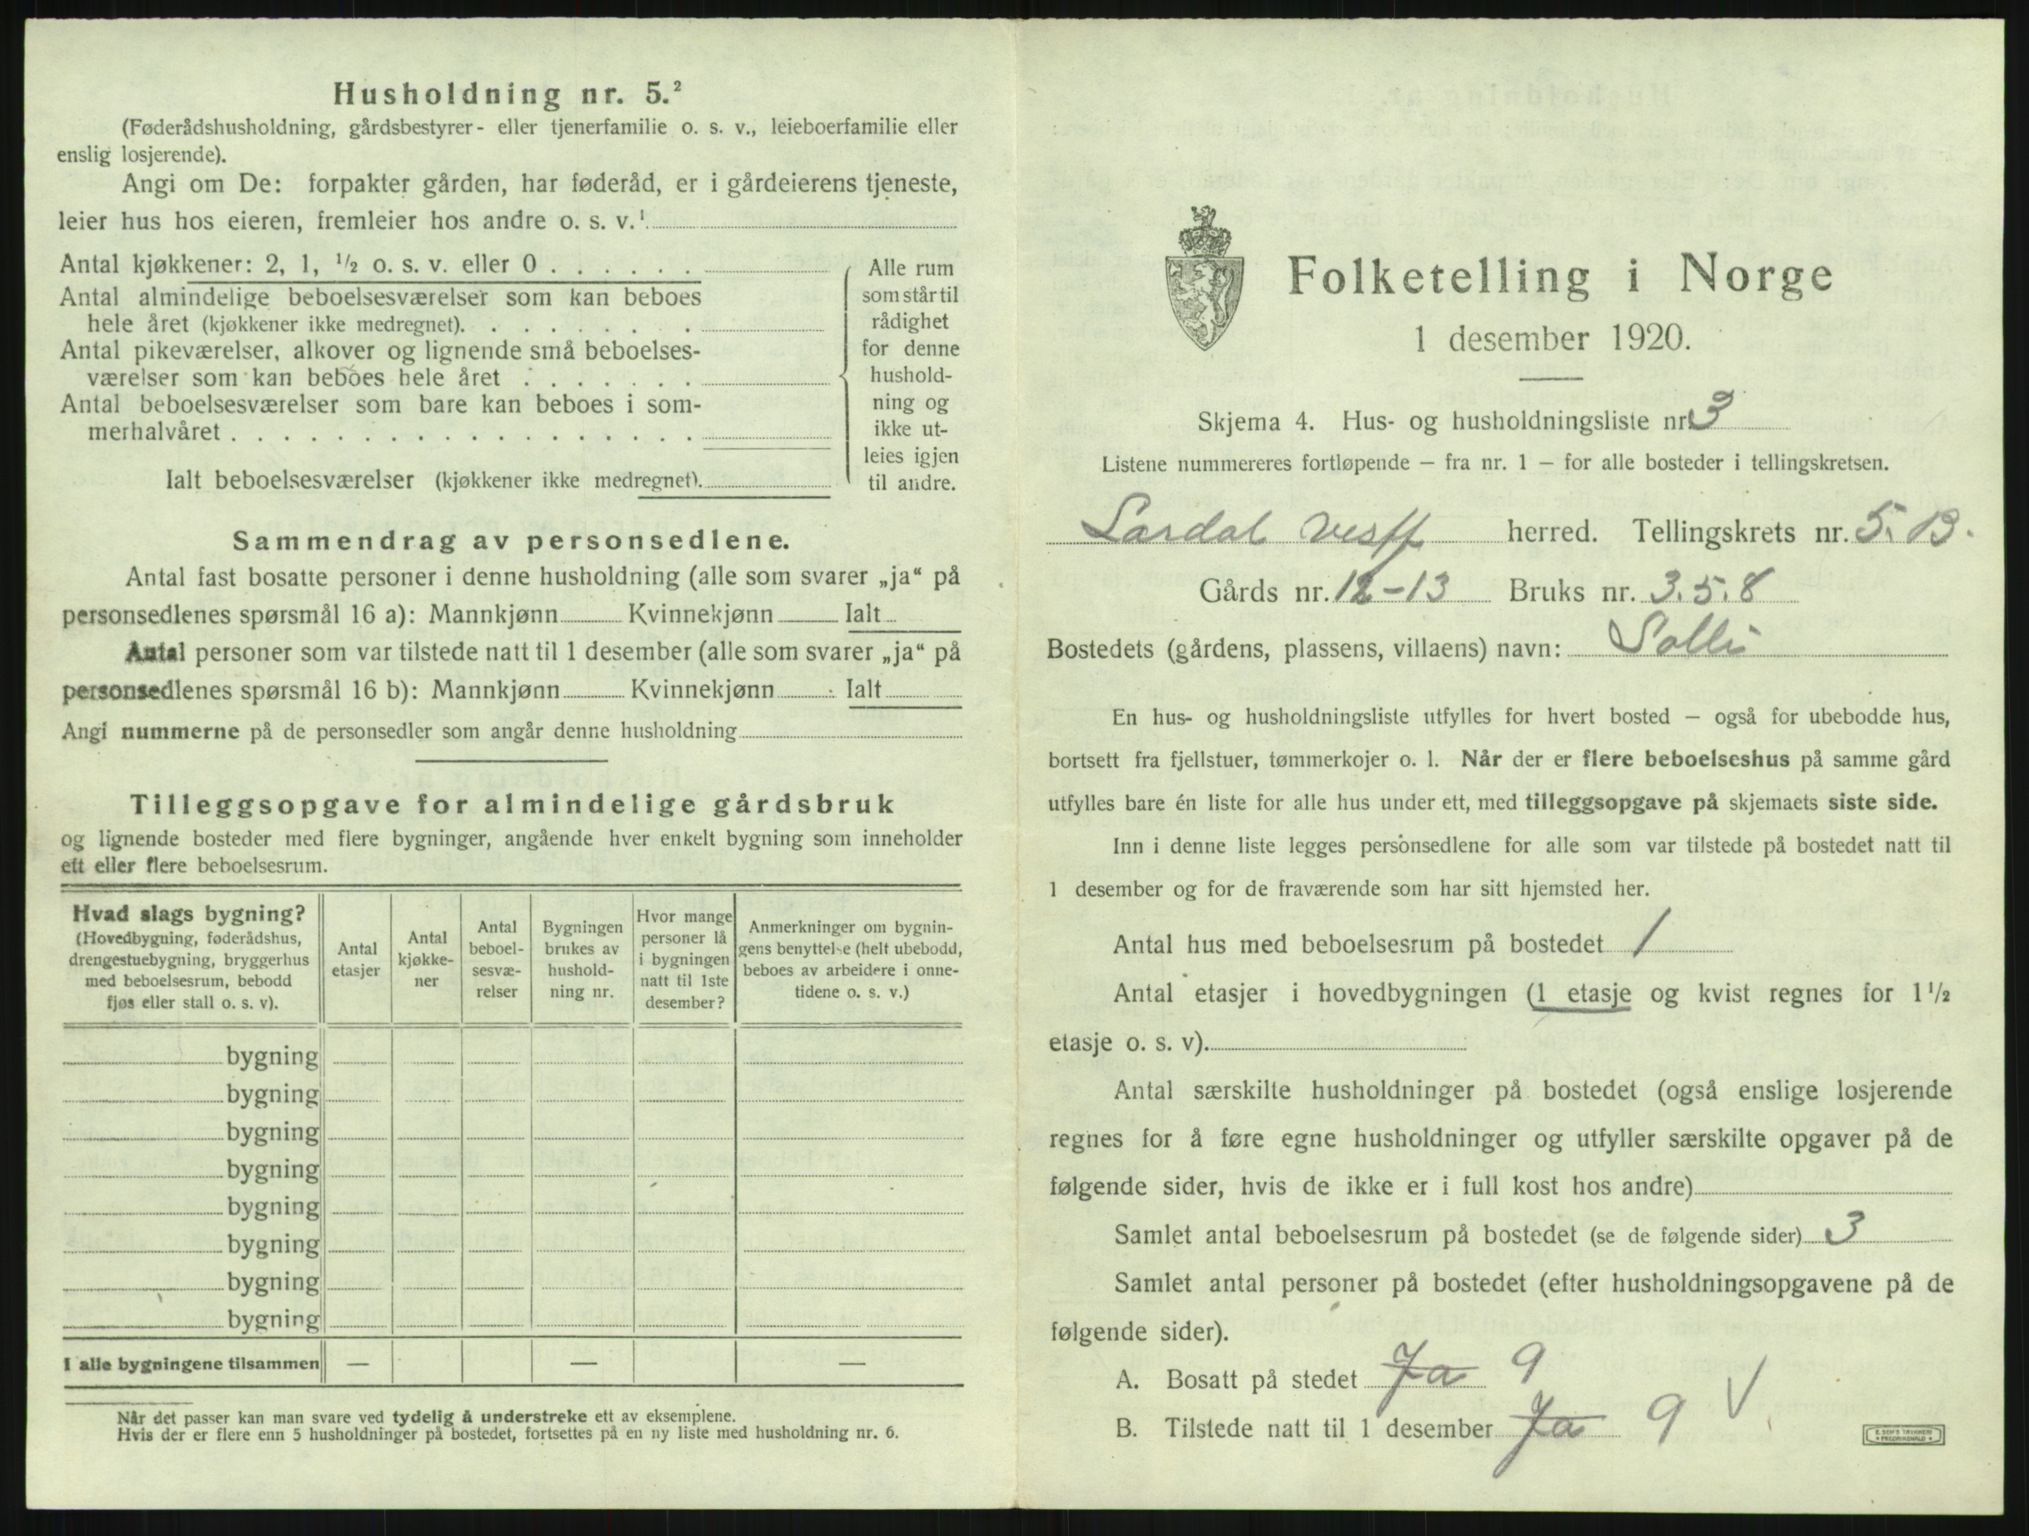 Husholdning nr. 5.²
(Føderådshusholdning, gårdsbestyrer- eller tjenerfamilie o. s. v., leieboerfamilie eller
enslig losjerende).
Angi om De: forpakter gården, har føderåd, er i gårdeierens tjeneste,
leier hus hos eieren, fremleier hos andre o. s. v.¹
Antal kjøkkener: 2, 1, ½ o. s. v. eller 0 . . . . . .
Antal almindelige beboelsesværelser som kan beboes
hele året (kjøkkener ikke medregnet). . . . . . . . .
Antal pikeværelser, alkover og lignende små beboelses-
værelser som kan beboes hele året . . . . . . .
Antal beboelsesværelser som bare kan beboes i som-
merhalvåret . . . . . . . . . . . . . . . . . .
Ialt beboelsesværelser (kjøkkener ikke medregnet).
Alle rum
som står til
rådighet
for denne
hushold-
ning og
ikke ut-
leies igjen
til andre.
Sammendrag av personsedlene.
Antal fast bosatte personer i denne husholdning (alle som svarer „ja“ på
personsedlenes spørsmål 16 a): Mannkjønn Kvinnekjønn Ialt
Antal personer som var tilstede natt til 1 desember (alle som svarer „ja“ på
personsedlenes spørsmål 16 b): Mannkjønn Kvinnekjønn Ialt
Angi nummerne på de personsedler som angår denne husholdning
Tilleggsopgave for almindelige gårdsbruk
og lignende bosteder med flere bygninger, angående hver enkelt bygning som inneholder
ett eller flere beboelsesrum.
Hvad slags bygning?
(Hovedbygning, føderådshus,
drengestuebygning, bryggerhus
med beboelsesrum, bebodd
fjøs eller stall o. s. v).
Antal
etasjer
Antal
kjøkke-
ner
Antal
beboel-
sesvæ-
relser
Bygningen
brukes av
hushold-
ning nr.
Hvor mange
personer lå
i bygningen
natt til 1ste
desember?
Anmerkninger om bygnin-
gens benyttelse (helt ubebodd,
beboes av arbeidere i onne-
tidene o. s. v.)
bygning
bygning
bygning
bygning
bygning
bygning
bygning
bygning
I alle bygningene tilsammen — — —
Når det passer kan man svare ved tydelig å understreke ett av eksemplene.
Hvis der er flere enn 5 husholdninger på bostedet, fortsettes på en ny liste med husholdning nr. 6.
Folketelling i Norge
1 desember 1920.
Skjema 4. Hus- og husholdningsliste nr. 3
Listene nummereres fortløpende – fra nr. 1 – for alle bosteder i tellingskretsen.
Lardal vestf herred. Tellingskrets nr. 5. B.
Gårds nr. 12-13 Bruks nr. 3.5.8
Bostedets (gårdens, plassens, villaens) navn: Solli
En hus- og husholdningsliste utfylles for hvert bosted – også for ubebodde hus,
bortsett fra fjellstuer, tømmerkojer o. l. Når der er flere beboelseshus på samme gård
utfylles bare én liste for alle hus under ett, med tilleggsopgave på skjemaets siste side.
Inn i denne liste legges personsedlene for alle som var tilstede på bostedet natt til
1 desember og for de fraværende som har sitt hjemsted her.
Antal hus med beboelsesrum på bostedet 1
Antal etasjer i hovedbygningen (1 etasje og kvist regnes for 1½
etasje o. s. v).
Antal særskilte husholdninger på bostedet (også enslige losjerende
regnes for å føre egne husholdninger og utfyller særskilte opgaver på de
følgende sider, hvis de ikke er i full kost hos andre)
Samlet antal beboelsesrum på bostedet (se de følgende sider) 3
Samlet antal personer på bostedet (efter husholdningsopgavene på de
følgende sider).
A. Bosatt på stedet Ja 9
B. Tilstede natt til 1 desember Ja 9 √